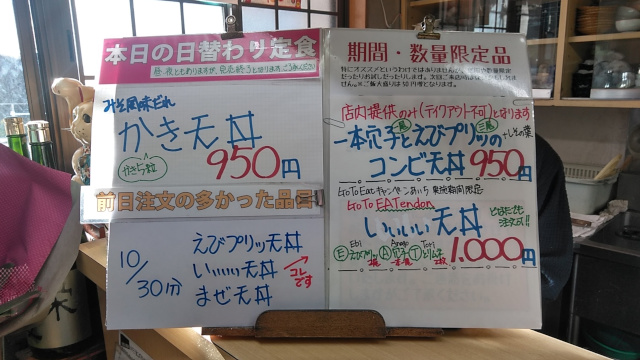 本日の日替わり定食
みそ風味だれ
かき天丼
かき5粒
950円
前日注文の多かった品目!
10/30分
えびプリッ天丼
いいいい天丼
まぜ天丼
コレです
期間・数量限定品
店内提供のみ(テイクアウト不可)となります
一本穴子とえびプリッの
コンビ天丼 950円
GoToEatキャンペーンあいち 実施期間限定
GoTo EATendon
いいいい天丼
1,000円
Ebi Anago Tori
Eえびプリッ2尾 A穴子一本 Tとりムネ2枚